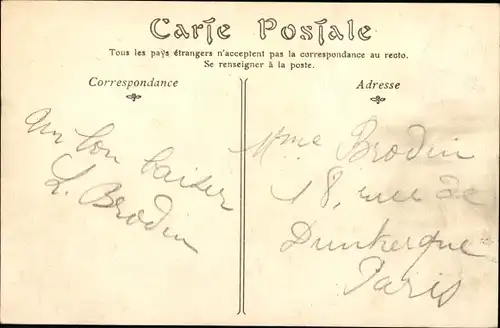 Carte Postale
Tous les pays étrangers n'acceptent pas la correspondance au recto.
Se renseigner à la poste.
Correspondance
Adresse
un bon baiser
L. Brodin
Mme Brodin
18, rue de
Dunkerque
Paris